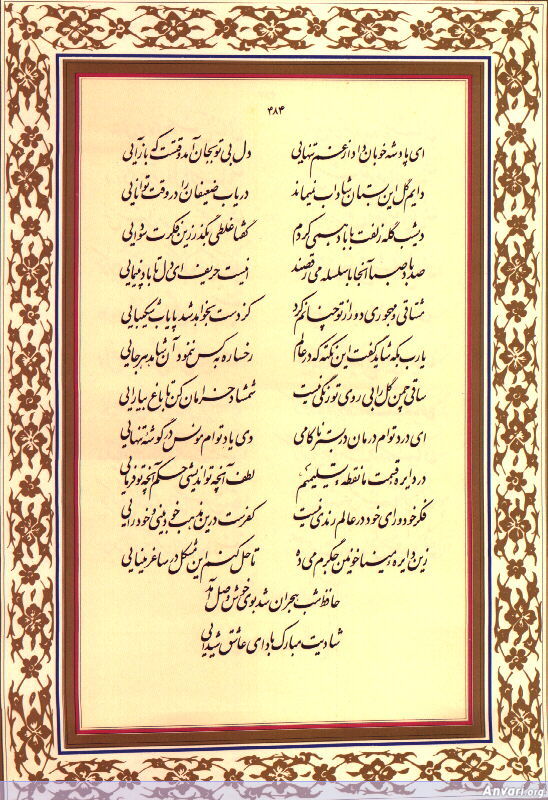 ۴۸۴
ای پادشه خوبان داد از غم تنهایی دل بی تو بجان آمد وقتست که بازآیی
دایم گل این بستان شاداب نمیماند دریاب ضعیفان را در وقت توانایی
دیشب گله زلفت با باد همی کردم گفتا غلطی بگذر زین فکرت سودایی
صد باد صبا آنجا با سلسله می رقصند اینست حریف ای دل تا باد نپیمایی
مشتاقی و مهجوری دور از تو چنانم کرد کز دست بخواهد شد پایاب شکیبایی
یارب بکه شاید گفت این نکته که در عالم رخساره بکس ننمود آن شاهد هرجایی
ساقی چمن گل را بی روی تو رنگی نیست شمشاد خرامان کن تا باغ بیارایی
ای درد توام درمان در بستر ناکامی وی یاد توام مونس در گوشه تنهایی
در دایره قسمت ما نقطه تسلیمیم لطف آنچه تو اندیشی حکم آنچه تو فرمایی
فکر خود و رای خود در عالم رندی نیست کفرست درین مذهب خودبینی و خودرایی
زین دایره مینا خونین جگرم می ده تا حل کنم این مشکل در ساغر مینایی
حافظ شب هجران شد بوی خوش وصل آمد
شادیت مبارک باد ای عاشق شیدایی
Anvari.org